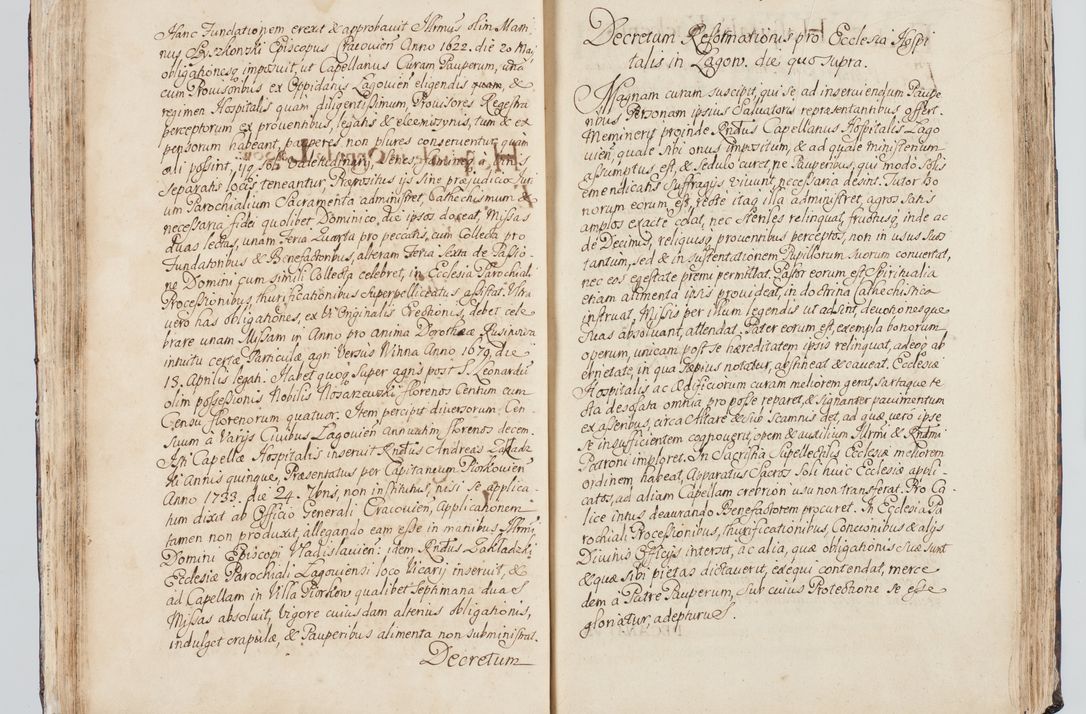 Hanc Fundationem erexit & approbavit Illrmus olim Marti-
nus Szyszkowski Episcopus Cracovien Anno 1622. die 20 Maij
obligationesq imposuit, ut Capellanus Curam Pauperum, una
cum Provisoribus ex Oppidanis Lagovien eligendis quam, &
regimen Hospitalis quam diligentissimum, Provisores Regestra
perceptorum ex proventibus, legatis & eleemosynis, tum & ex
pensorum habeant, pauperes non plures conserventur quam
ali possint, ijq soli Valetudinarij, Senes, faeminae a
separatis locis teneantur, Praepositus ijs sine praejudicio Juri
um Parochialium Sacramenta administret, Cathechismum &
necessaria fidei quolibet Dominico, die ipsos doceat, Missas
duas lectas, unam Feria Quarta pro peccatis, cum Collecta pro
Fundatoribus & Benefactoribus, alteram Feria Sexta de Passio-
ne Domini cum simili Collecta celebret, in Ecclesia Parochiali
Processionibus, thurificationibus Superpelliceatus assistat. Ultra
vero has obligationes, ex vi Originalis Erectionis, debet cele
brare unam Missam in Anno pro anima Dorotheae Rusinowa
intuitu certae Particulae agri versus Winna Anno 1679, die
13. Aprilis legati. Habet quoq super agris post S. Leonardu
olim possessionis Nobilis Noszarzewski florenos Centum cum
Censu florenorum quatuor. Item percipit diversorum Cen-
suum à Varijs Civibus Lagovien annuatim florenos decem.
Isti Capellae Hospitalis inservit Rndus Andreas Zakladz
ki Annis quinque, Praesentatus per Capitaneum Piorkovien
Anno 1733. die 24. 7bris, non institutus, nisi se applica-
tum dixit ab Officio Generali Cracovien, applicationem
tamen non produxit, allegando eam esse in manibus Illrmi
Domini Episcopi Vladislavien: idem Rndus Zakladzki
Ecclesiae Parochiali Lagoviensi loco Vicarij inservit, &
ad Capellam in Villa Piorkow qualibet Septimana duas
Missas absolvit, vigore cuiusdam alterius obligationis,
indulget crapulae, & Pauperibus alimenta non subministrat.
Decretum
Decretum Reformationis pro Ecclesia Hospi
talis in Lagow. die quo supra.
Magnam curam suscipit, qui se ad inserviendum Paupe
ribus Personam ipsius Salvatoris representantibus offert.
Meminerit proinde Rndus Capellanus Hospitalis Lago
vien, quale sibi onus impositum, & ad quale ministerium
assumptus est, & sedulo curet ne Pauperibus, qui modo Solis
emendicatis Suffragijs vivunt, necessaria desint. Tutor bo
norum eorum est, recte itaq illa administret, agros satis
amplos exacte colat, nec steriles relinquat, fructusq inde ac
de Decimis, reliquisq proventibus perceptos, non in usus suos
tantum, sed & in sustentationem Pupillorum Suorum convertat,
nec eos egestate premi permittat. Pastor eorum est, Spiritualia
etiam alimenta ipsis provideat, in doctrina Cathechistica
instruat, Missis per illum legendis ut adsint, devotionesque
suas absolvant, attendat. Pater eorum est, exempla bonorum
operum, unicam post se haereditatem ipsis relinquat, adeoq ab
ebrietate, in qua saepius notatur, abstineat & caveat. Ecclesiae
Hospitalis ac Aedificiorum curam meliorem gerat, Sartaque te
cta desolata omnia pro posse reparet, & signanter pavimentum
ex asseribus, circa Altare & sub scamnis det, ad quae vero ipse
se insufficientem cognoverit, opem & auxilium Illrmi & Rndmi
Patroni imploret. In Sacristia Supellectilis Ecclesiae meliorem
ordinem habeat, Apparatus Sacros Soli huic Ecclesiae appli
catos, ad aliam Capellam crebriori usu non transferat. Pro Ca
lice intus deaurando Benefactorem procuret. In Ecclesia Pa
rochiali Processionibus, thurificationibus, Concionibus & alijs
Divinis Officijs intersit, ac alia, quae obligationis suae sunt
& quae sibi pietas dictaverit, exequi contendat, merce
dem à Patre Pauperum, sub cuius Protectione se esse
gloriatur, adepturus.